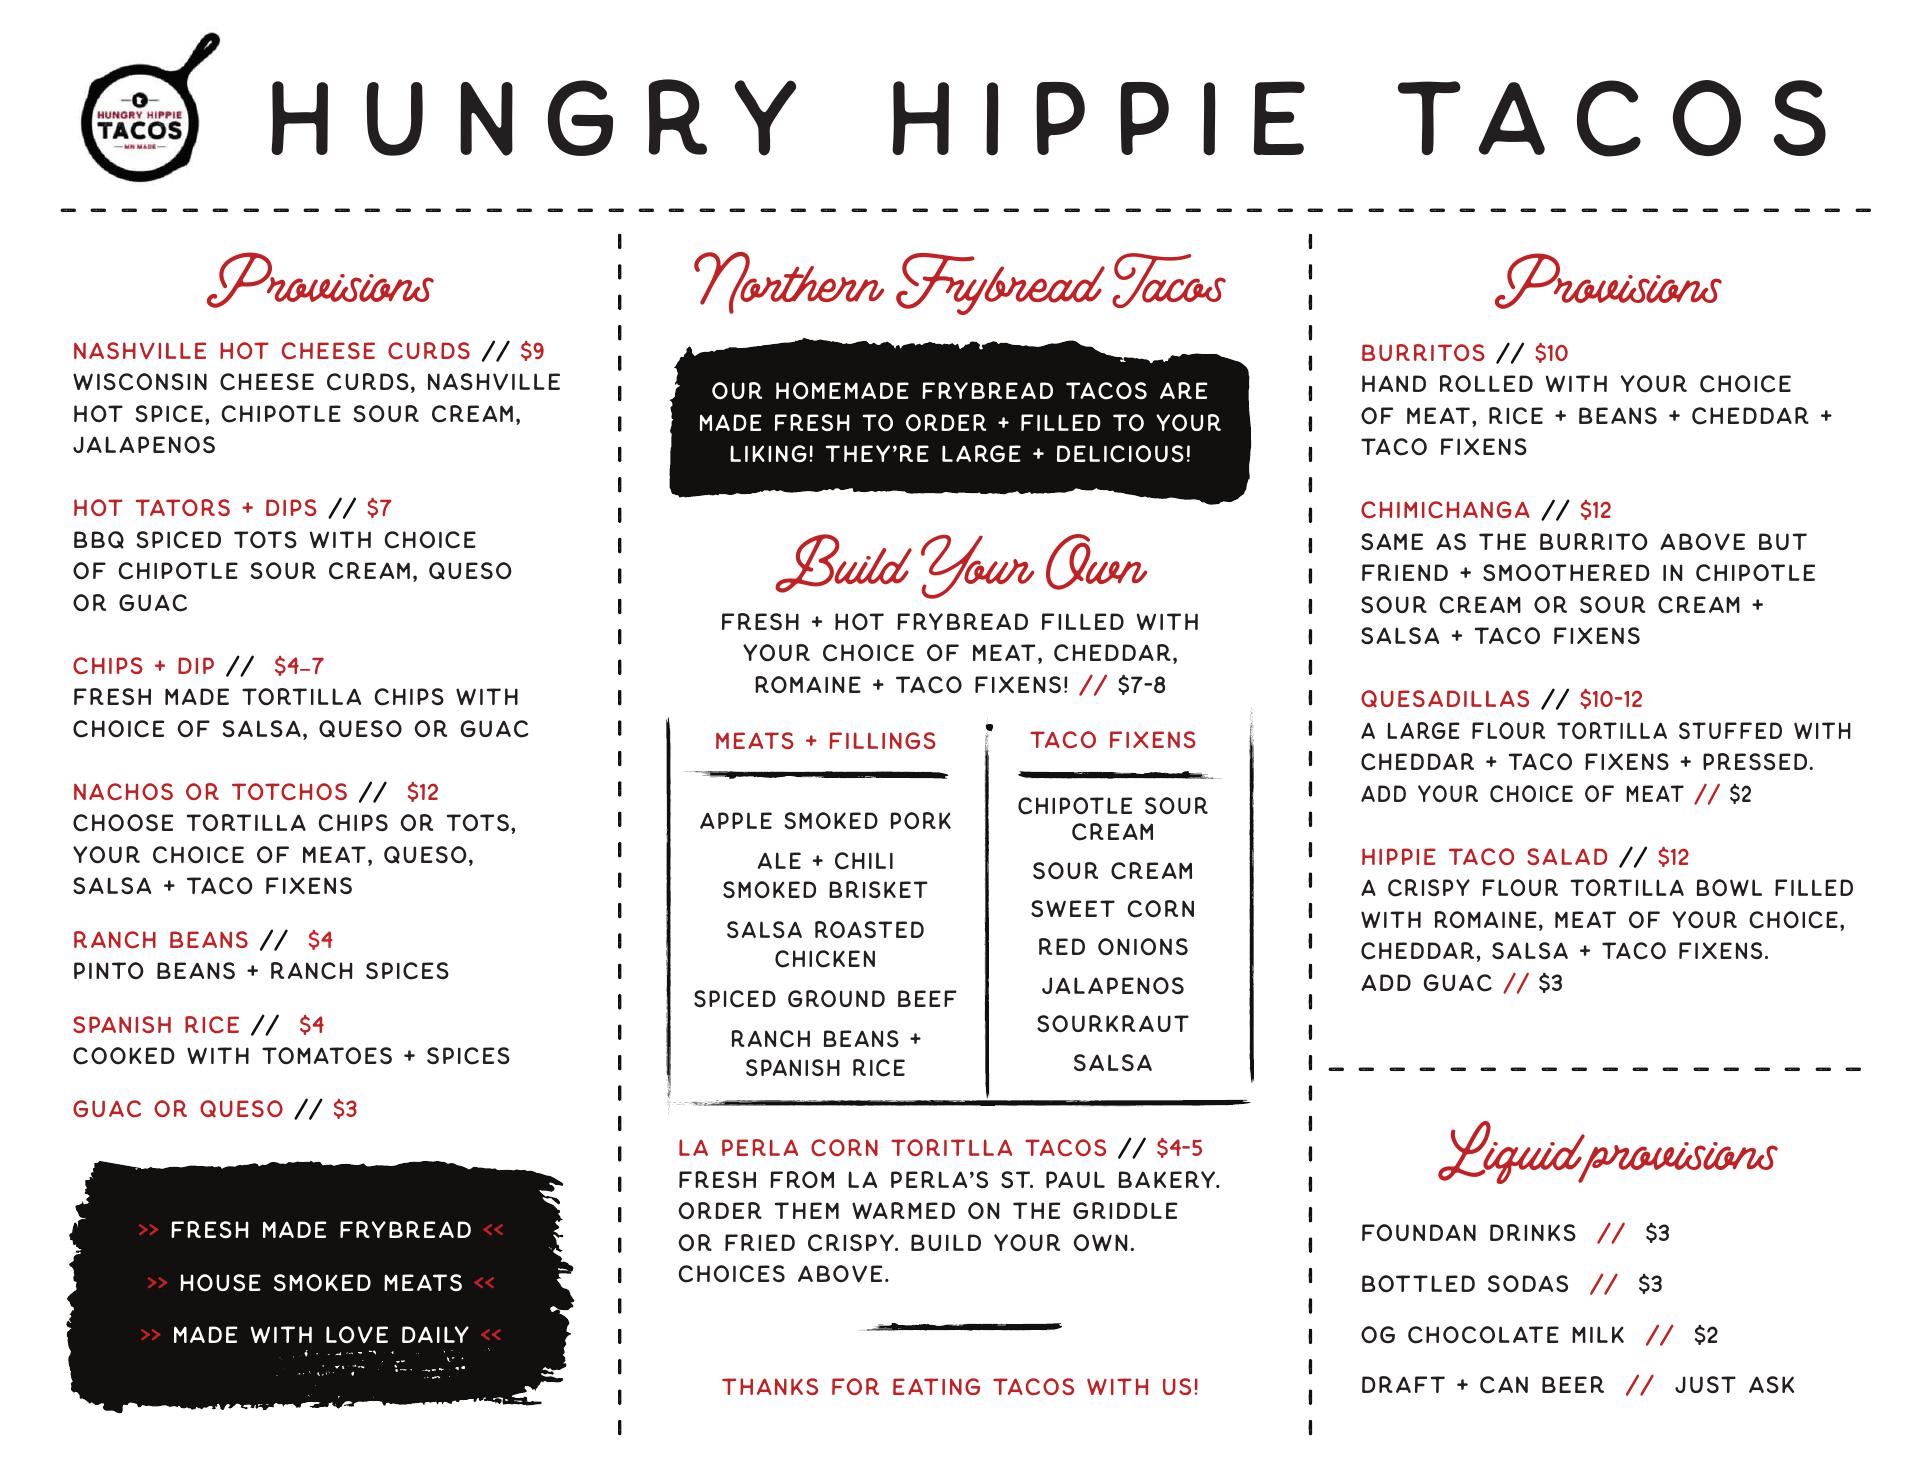 HUNGRY HIPPIE
TACOS
MN MADE
HUNGRY HIPPIE TACOS
Provisions
NASHVILLE HOT CHEESE CURDS // $9
WISCONSIN CHEESE CURDS, NASHVILLE
HOT SPICE, CHIPOTLE SOUR CREAM,
JALAPENOS
HOT TATORS + DIPS // $7
BBQ SPICED TOTS WITH CHOICE
OF CHIPOTLE SOUR CREAM, QUESO
OR GUAC
CHIPS + DIP // $4–7
FRESH MADE TORTILLA CHIPS WITH
CHOICE OF SALSA, QUESO OR GUAC
NACHOS OR TOTCHOS // $12
CHOOSE TORTILLA CHIPS OR TOTS,
YOUR CHOICE OF MEAT, QUESO,
SALSA + TACO FIXENS
RANCH BEANS // $4
PINTO BEANS + RANCH SPICES
SPANISH RICE // $4
COOKED WITH TOMATOES + SPICES
GUAC OR QUESO // $3
>> FRESH MADE FRYBREAD <<
>> HOUSE SMOKED MEATS <<
>> MADE WITH LOVE DAILY <<
Northern Frybread Tacos
OUR HOMEMADE FRYBREAD TACOS ARE
MADE FRESH TO ORDER + FILLED TO YOUR
LIKING! THEY'RE LARGE + DELICIOUS!
Build Your Own
FRESH + HOT FRYBREAD FILLED WITH
YOUR CHOICE OF MEAT, CHEDDAR,
ROMAINE + TACO FIXENS! // $7-8
MEATS + FILLINGS
APPLE SMOKED PORK
ALE + CHILI
SMOKED BRISKET
SALSA ROASTED
CHICKEN
SPICED GROUND BEEF
RANCH BEANS +
SPANISH RICE
TACO FIXENS
CHIPOTLE SOUR
CREAM
SOUR CREAM
SWEET CORN
RED ONIONS
JALAPENOS
SOURKRAUT
SALSA
LA PERLA CORN TORITLLA TACOS // $4-5
FRESH FROM LA PERLA'S ST. PAUL BAKERY.
ORDER THEM WARMED ON THE GRIDDLE
OR FRIED CRISPY. BUILD YOUR OWN.
CHOICES ABOVE.
THANKS FOR EATING TACOS WITH US!
Provisions
BURRITOS // $10
HAND ROLLED WITH YOUR CHOICE
OF MEAT, RICE + BEANS + CHEDDAR +
TACO FIXENS
CHIMICHANGA // $12
SAME AS THE BURRITO ABOVE BUT
FRIEND + SMOOTHERED IN CHIPOTLE
SOUR CREAM OR SOUR CREAM +
SALSA + TACO FIXENS
QUESADILLAS // $10-12
A LARGE FLOUR TORTILLA STUFFED WITH
CHEDDAR + TACO FIXENS + PRESSED.
ADD YOUR CHOICE OF MEAT // $2
HIPPIE TACO SALAD // $12
A CRISPY FLOUR TORTILLA BOWL FILLED
WITH ROMAINE, MEAT OF YOUR CHOICE,
CHEDDAR, SALSA + TACO FIXENS.
ADD GUAC // $3
Liquid provisions
FOUNDAN DRINKS // $3
BOTTLED SODAS // $3
OG CHOCOLATE MILK // $2
DRAFT + CAN BEER // JUST ASK